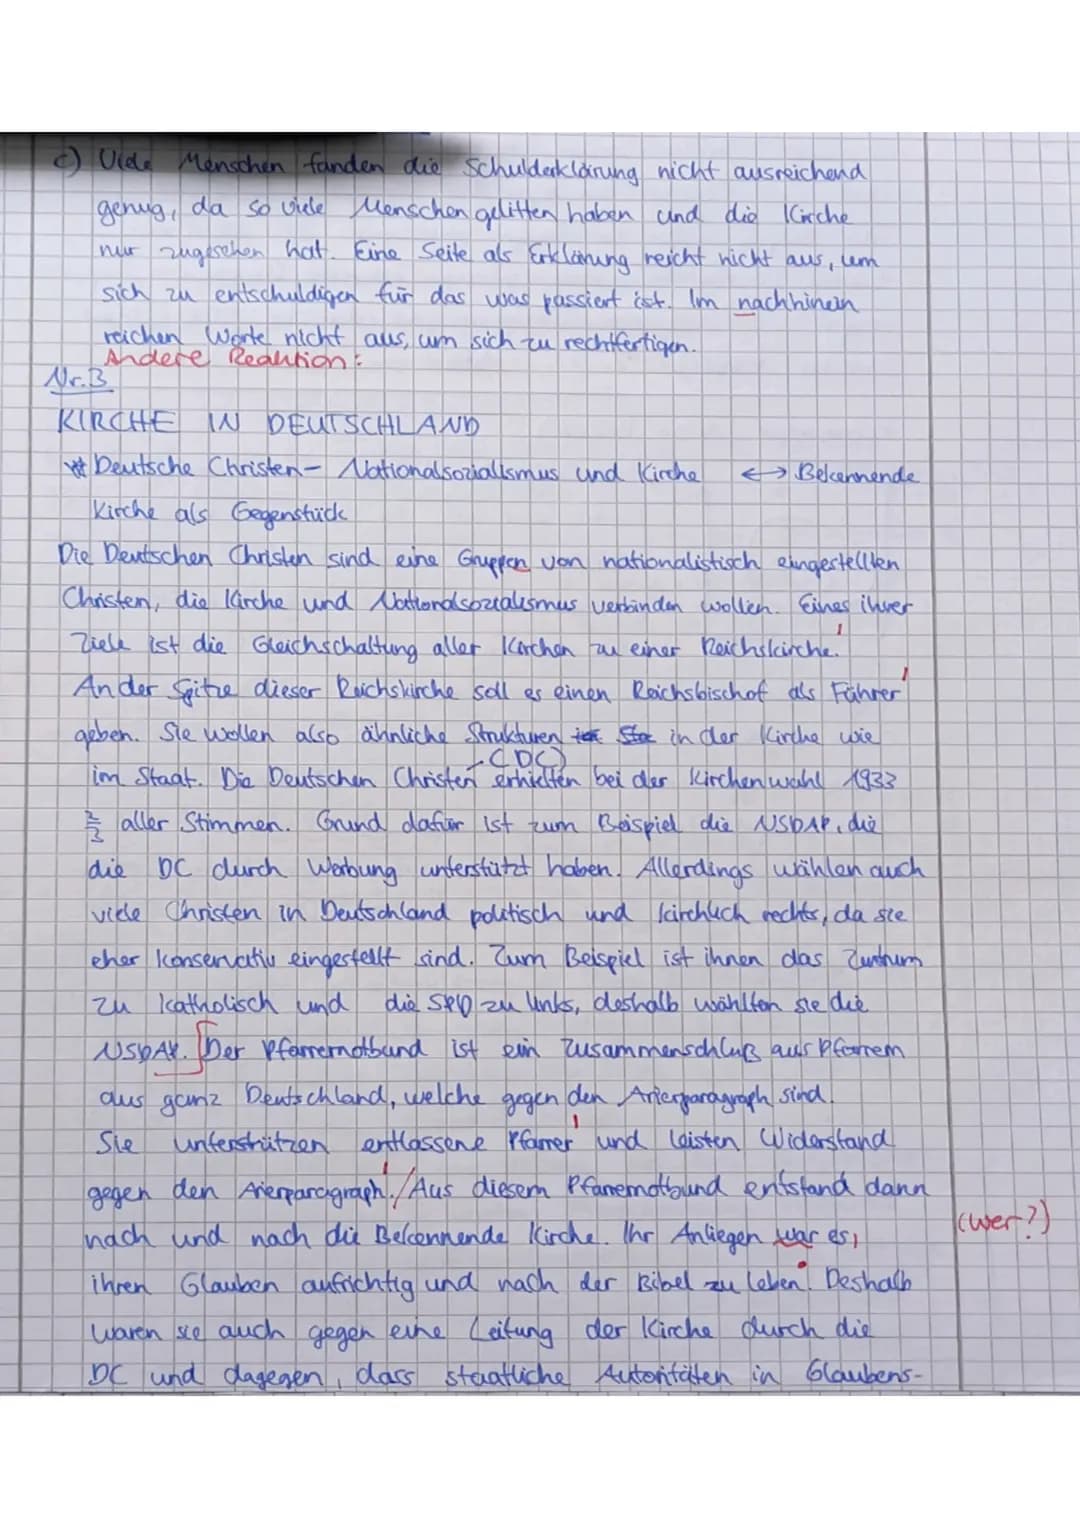 c) Viele Menschen fanden die Schulderklärung nicht ausreichend
genug, da so viele Menschen gelitten haben und die Kirche
nur zugesehen hat. Eine Seite als Erklärung reicht nicht aus, um
sich zu entschuldigen für das was passiert ist. Im nachhinein
reichen Worte nicht aus, um sich zu rechtfertigen.
Andere Reaktion:
Nr.3
KIRCHE IN DEUTSCHLAND
Deutsche Christen- Nationalsozialismus und Kirche ↔ Bekennende
Kirche als Gegenstück
Die Deutschen Christen sind eine Gruppen von nationalistisch eingestellten
Christen, die Kirche und Nationalsozialismus verbinden wollen. Eines ihrer
Ziele ist die Gleichschaltung aller Kirchen zu einer Reichskirche.
An der Spitze dieser Reichskirche soll es einen Reichsbischof als Führer
geben. Sie wollen also ähnliche Strukturen in der Kirche wie
(DC)
im Staat. Die Deutschen Christen erhielten bei der Kirchenwahl 1933
2/3 aller Stimmen. Grund dafür ist zum Beispiel die NSDAP, die
die DC durch Werbung unterstützt haben. Allerdings wählen auch
viele Christen in Deutschland politisch und kirchlich rechts, da sie
eher konservativ eingestellt sind. Zum Beispiel ist ihnen das Zentrum
zu katholisch und die SPD zu links, deshalb wählten sie die
NSDAP. [Der Pfarrernotbund ist ein Zusammenschluß aus Pfarrern
aus ganz Deutschland, welche gegen den Arierparagraph sind.
Sie unterstützen entlassene Pfarrer und leisten Widerstand
gegen den Arierparagraph./Aus diesem Pfarrernotbund entstand dann
nach und nach die Bekennende Kirche. Ihr Anliegen war es, (wer?)
ihren Glauben aufrichtig und nach der Bibel zu leben. Deshalb
waren sie auch gegen eine Leitung der Kirche durch die
DC und dagegen, dass staatliche Autoritäten in Glaubens-